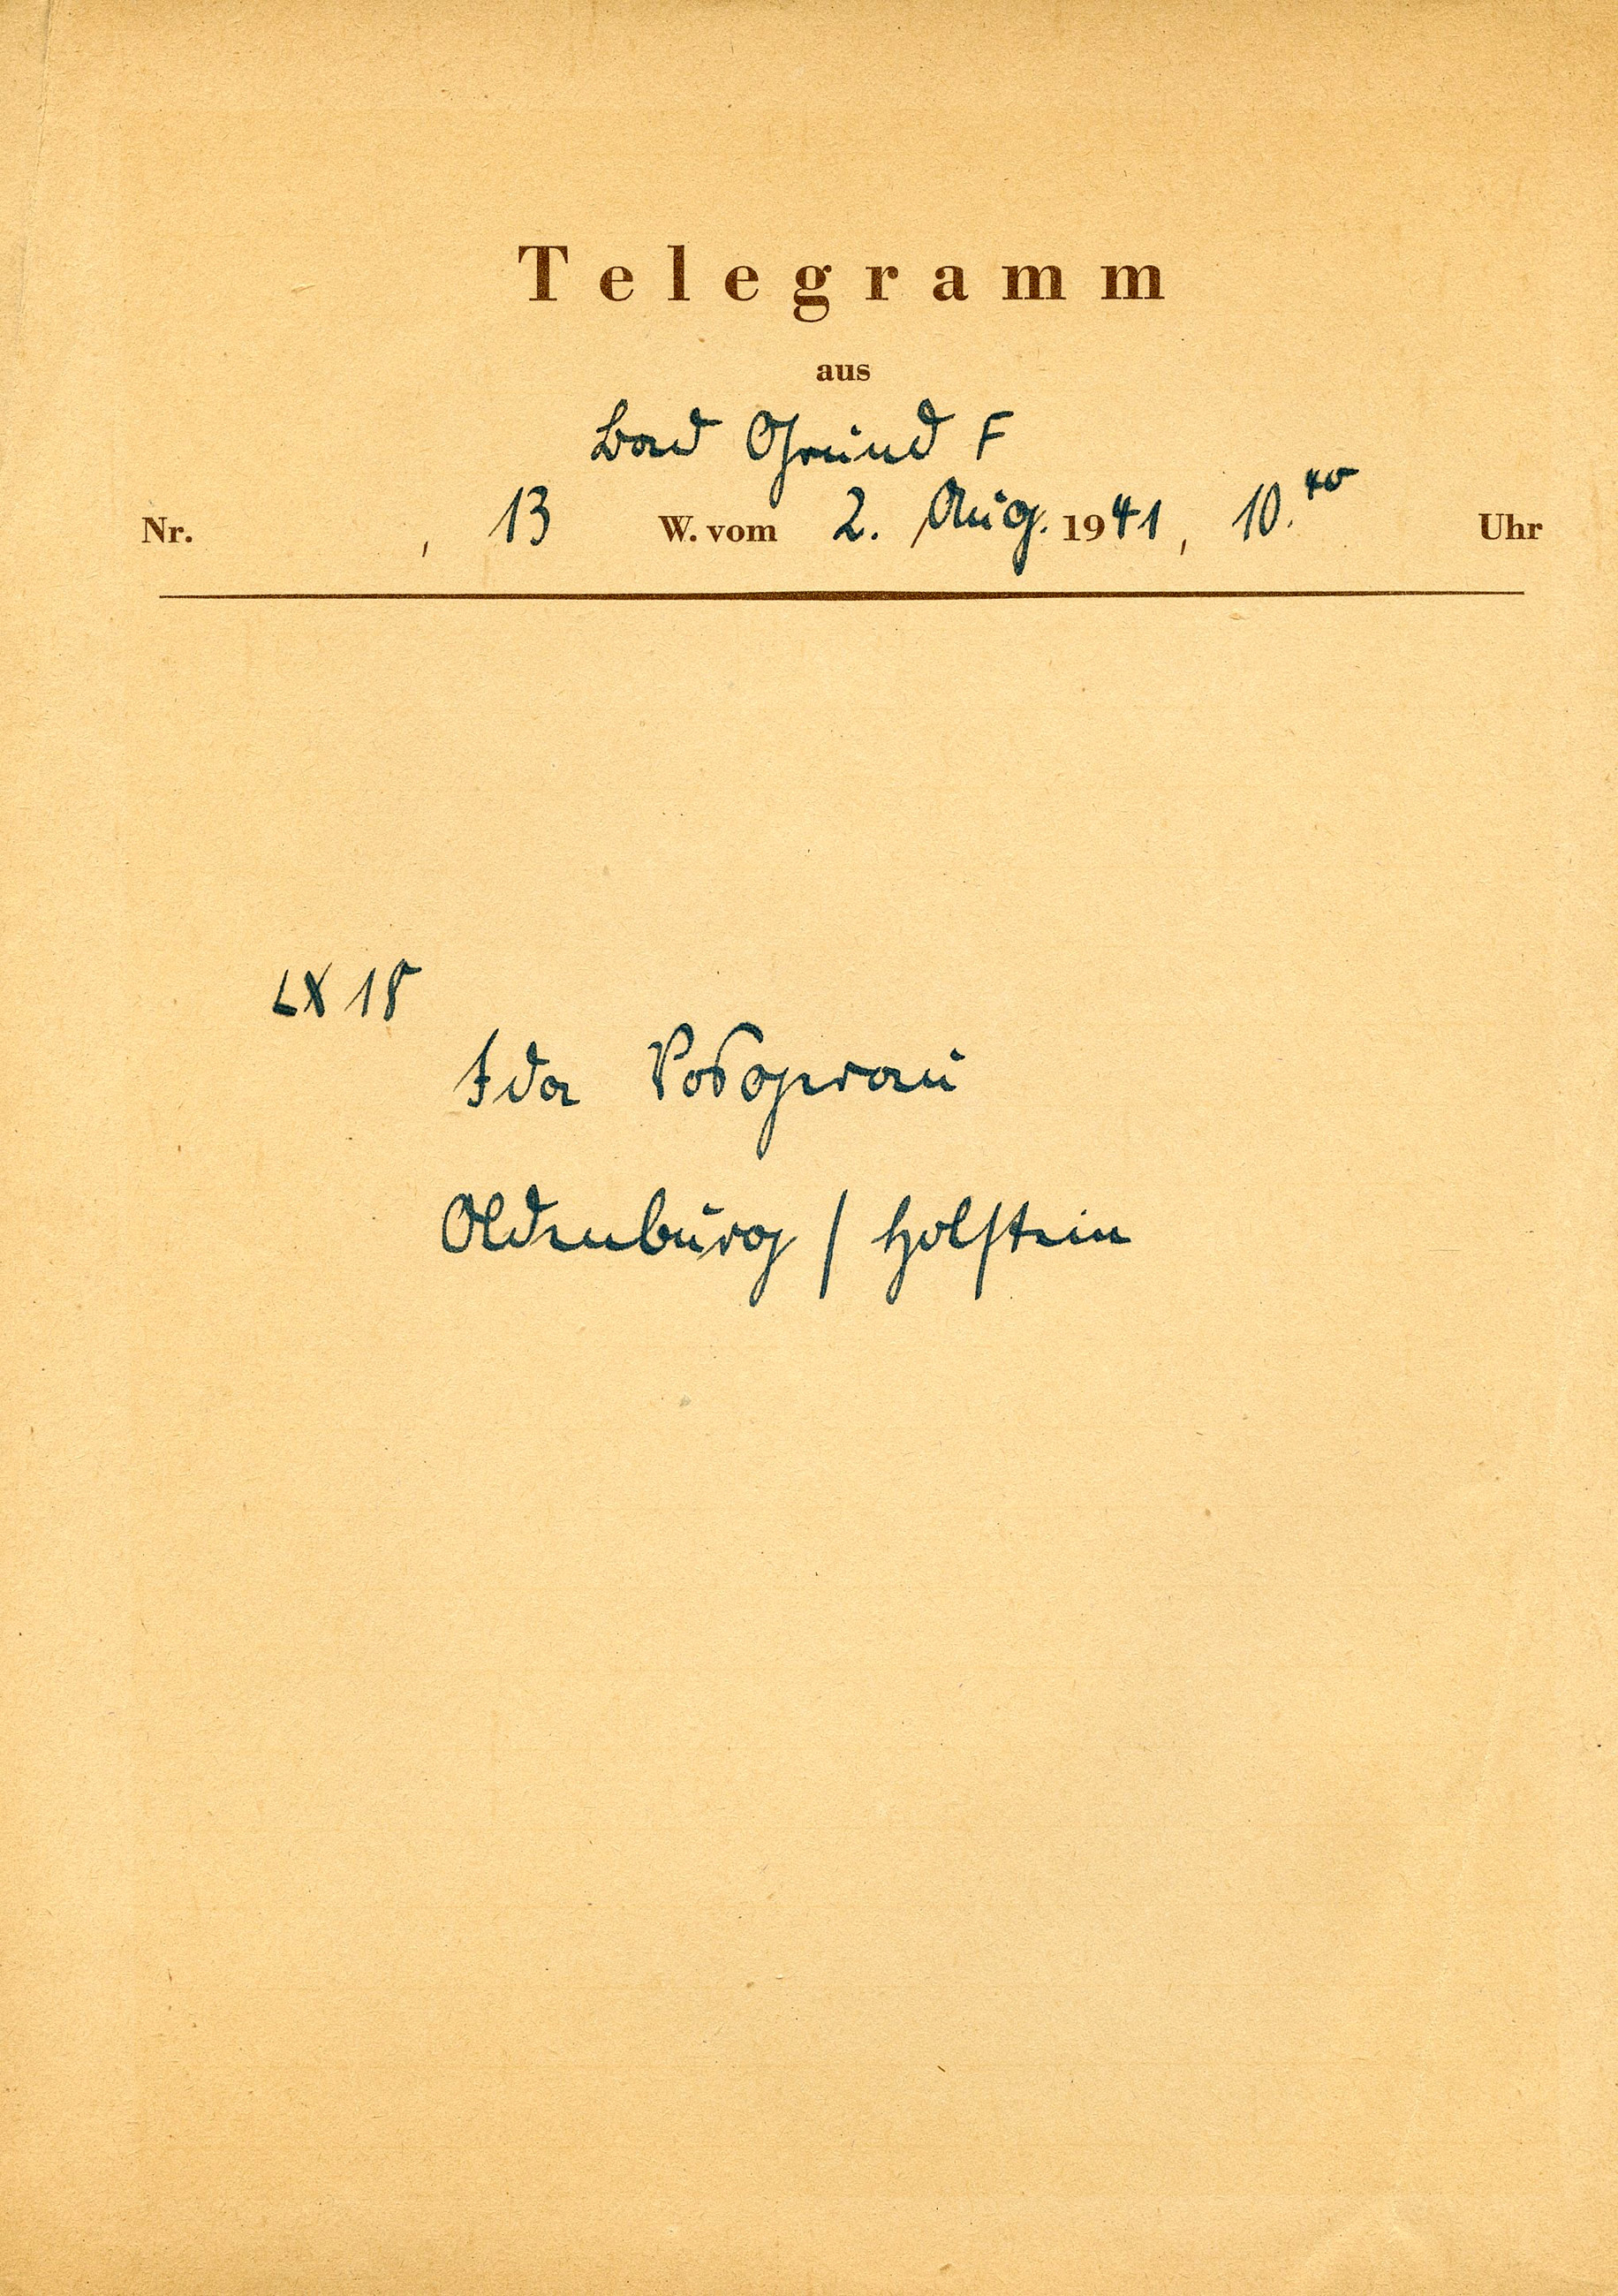 Telegramm
aus
Bad Grund F
Nr. , 13 W. vom 2. Aug. 1941, 10.40 Uhr
LX 15
Ida Vosgerau
Oldenburg / Holstein